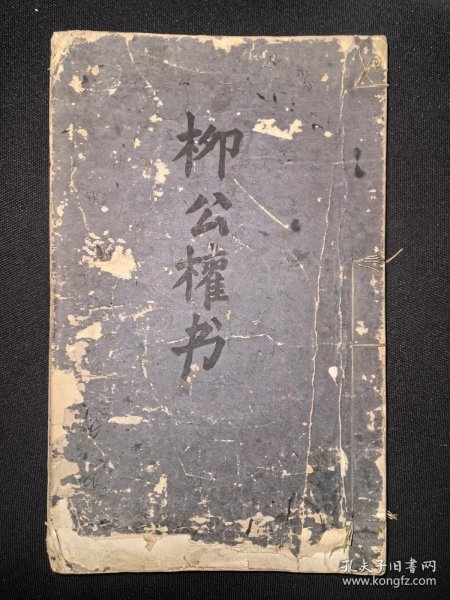 柳公權书
孔夫子旧书网
www.kongfz.com